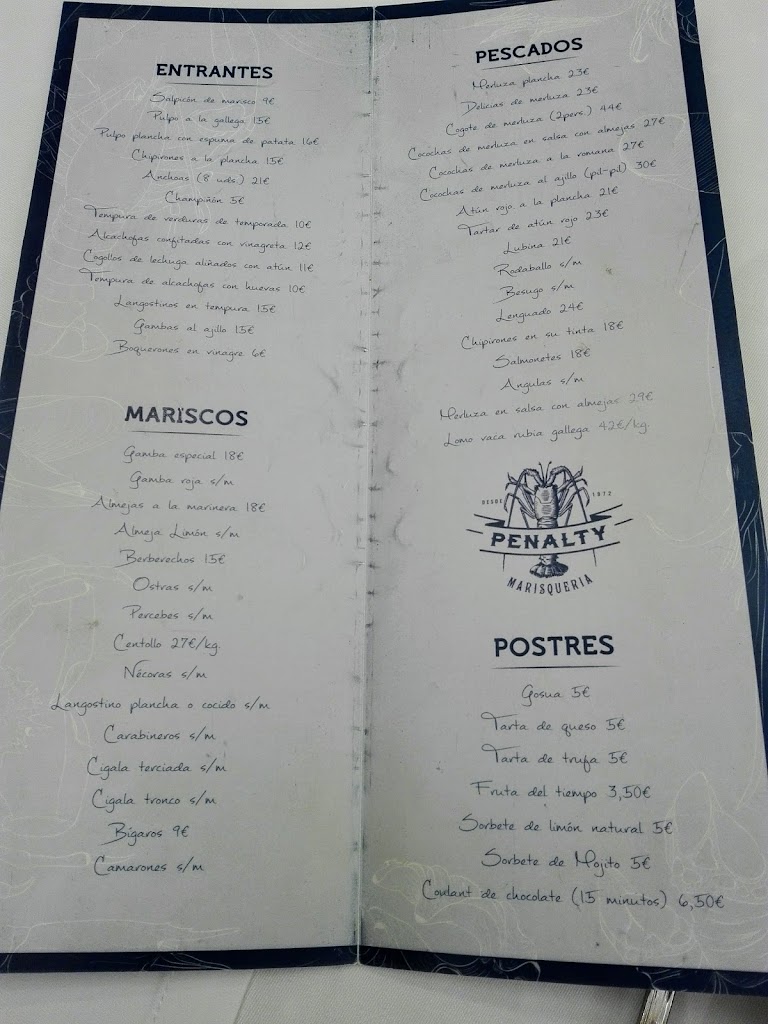 ENTRANTES
Salpicón de marisco 9€
Pulpo a la gallega 15€
Pulpo plancha con espuma de patata 16€
Chipirones a la plancha 15€
Anchoas (8 uds.) 21€
Champiñón 5€
Tempura de verduras de temporada 10€
Alcachofas confitadas con vinagreta 12€
Cogollos de lechuga aliñados con atún 11€
Tempura de alcachofas con huevas 10€
Langostinos en tempura 15€
Gambas al ajillo 15€
Boquerones en vinagre 6€
MARISCOS
Gamba especial 18€
Gamba roja s/m
Almejas a la marinera 18€
Almeja Limón s/m
Berberechos 15€
Ostras s/m
Percebes s/m
Centollo 27€/kg.
Nécoras s/m
Langostino plancha o cocido s/m
Carabineros s/m
Cigala terciada s/m
Cigala tronco s/m
Bígaros 9€
Camarones s/m
PESCADOS
Merluza plancha 23€
Delicias de merluza 23€
Cogote de merluza (2pers.) 44€
Cocochas de merluza en salsa con almejas 27€
Cocochas de merluza a la romana 27€
Cocochas de merluza al ajillo (pil-pil) 30€
Atún rojo a la plancha 21€
Tartar de atún rojo 23€
Lubina 21€
Rodaballo s/m
Besugo s/m
Lenguado 24€
Chipirones en su tinta 18€
Salmonetes 18€
Angulas s/m
Merluza en salsa con almejas 29€
Lomo vaca rubia gallega 42€/kg.
DESDE 1972
PENALTY
MARISQUERIA
POSTRES
Gosua 5€
Tarta de queso 5€
Tarta de trufa 5€
Fruta del tiempo 3,50€
Sorbete de limón natural 5€
Sorbete de Mojito 5€
Coulant de chocolate (15 minutos) 6,50€